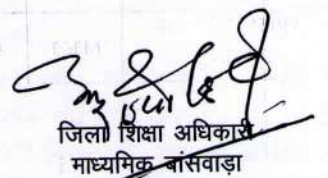 जिला शिक्षा अधिकारी
माध्यमिक बांसवाड़ा